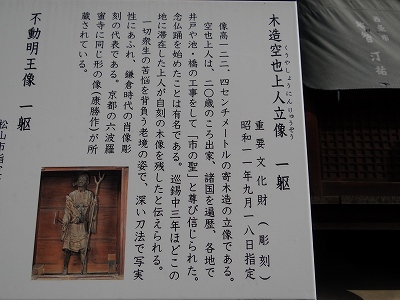 木造空也上人立像　一躯
くうやしょうにんりゅうぞう
重要文化財（彫刻）
昭和一一年九月一八日指定
像高一二二、四センチメートルの寄木造の立像である。
空也上人は、二〇歳のころ出家、諸国を遍歴、各地で
井戸や池・橋の工事をして「市の聖」と尊び信じられた。
念仏踊を始めたことは有名である。巡錫中三年ほどこの
地に滞在した上人が自刻の木像を残したと伝えられる。
一切衆生の苦悩を背負う老境の姿で、深い刀法で写実
性にあふれ、鎌倉時代の肖像彫
刻の代表である。京都の六波羅
蜜寺に同じ形の像（康勝作）が所
蔵されている。
不動明王像　一躯
松山市指